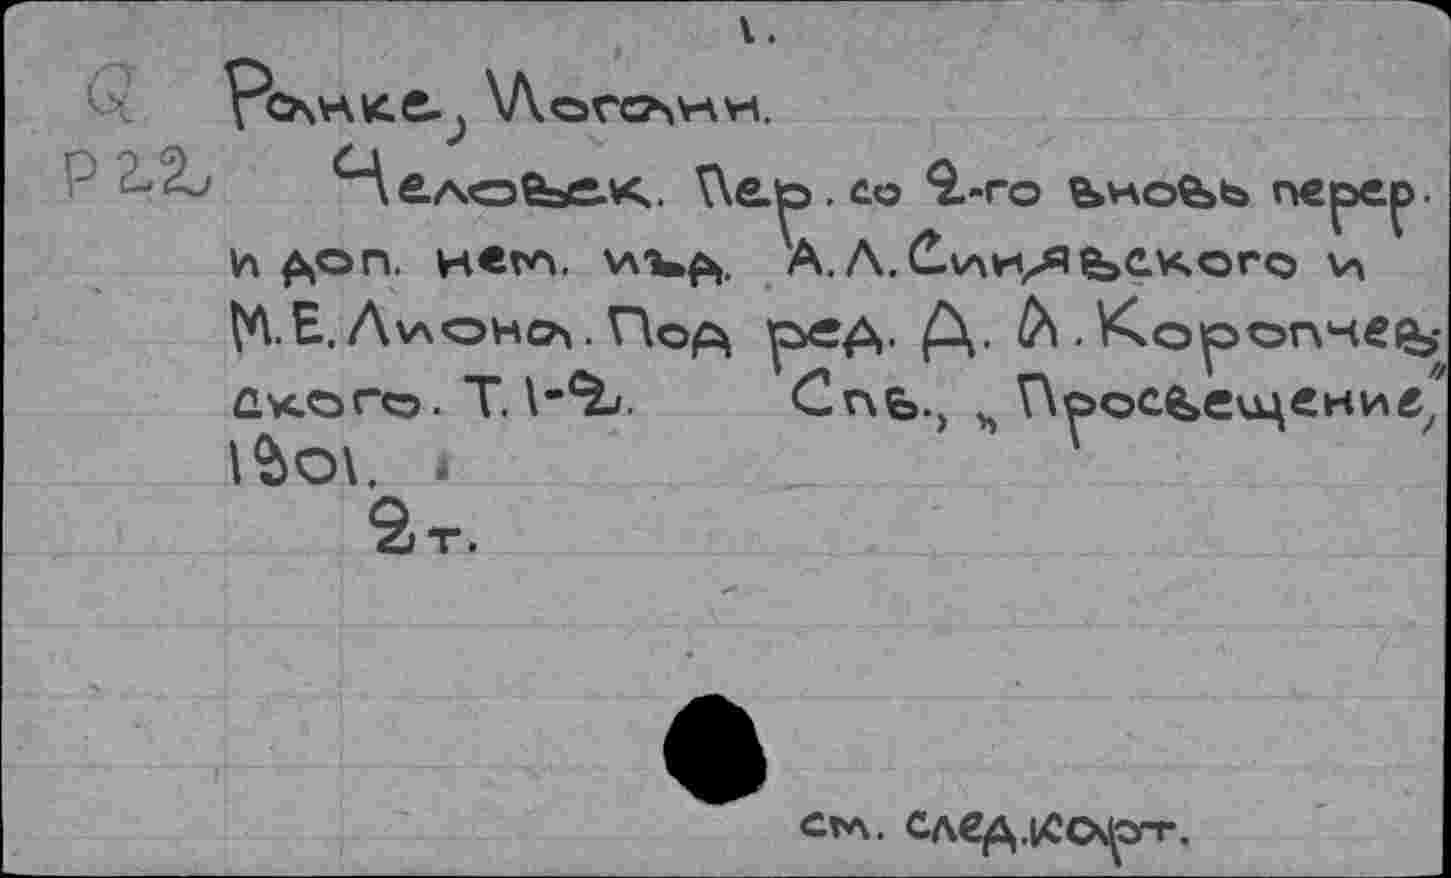 1.
Q Ранке, Иоганн.
P22 Человек. Пер. со 2-го вновь перер.
и доп. нем. изд. А.Л.Синявского и
М.Е.Лиона. Под ред. Д. А. Коропчев-
ского. Т.1-2. Спб., „Просвещение",
1901.
2 т.
см. след.карт.